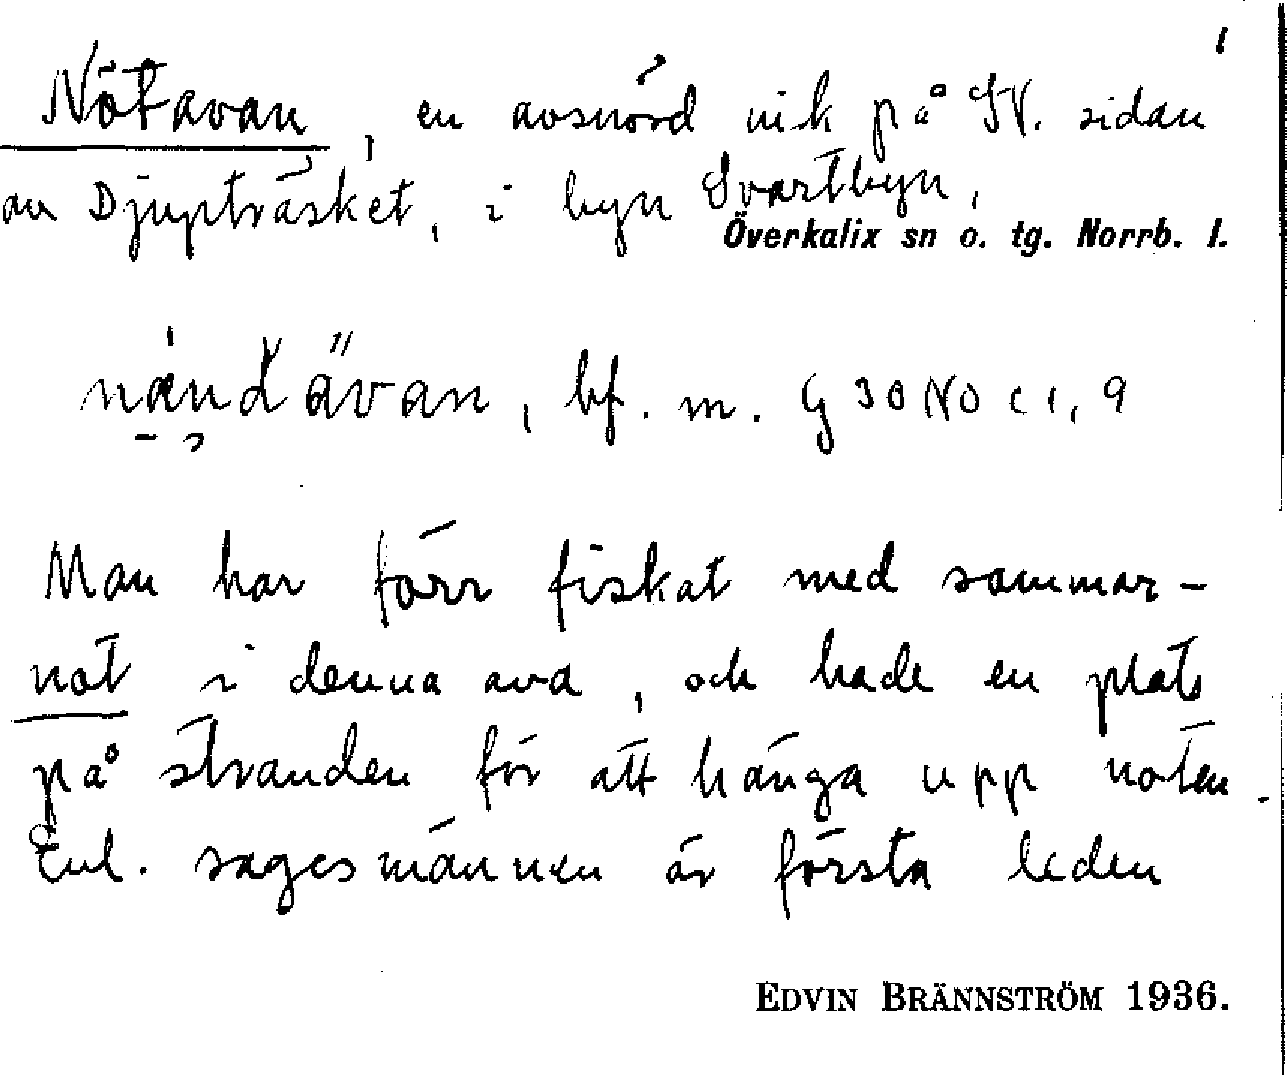 1
Nötavan, en avsnörd vik på SV. sidan
av Djupträsket, i byn Svartbyn,
Överkalix sn o. tg. Norrb. l.
bf. m. G 30 NO c 1, 9
Man har förr fiskat med sommar-
not i denna ava, och hade en plats
på stranden för att hänga upp noten.
Enl. sagesmännen är första leden
EDVIN BRÄNNSTRÖM 1936.